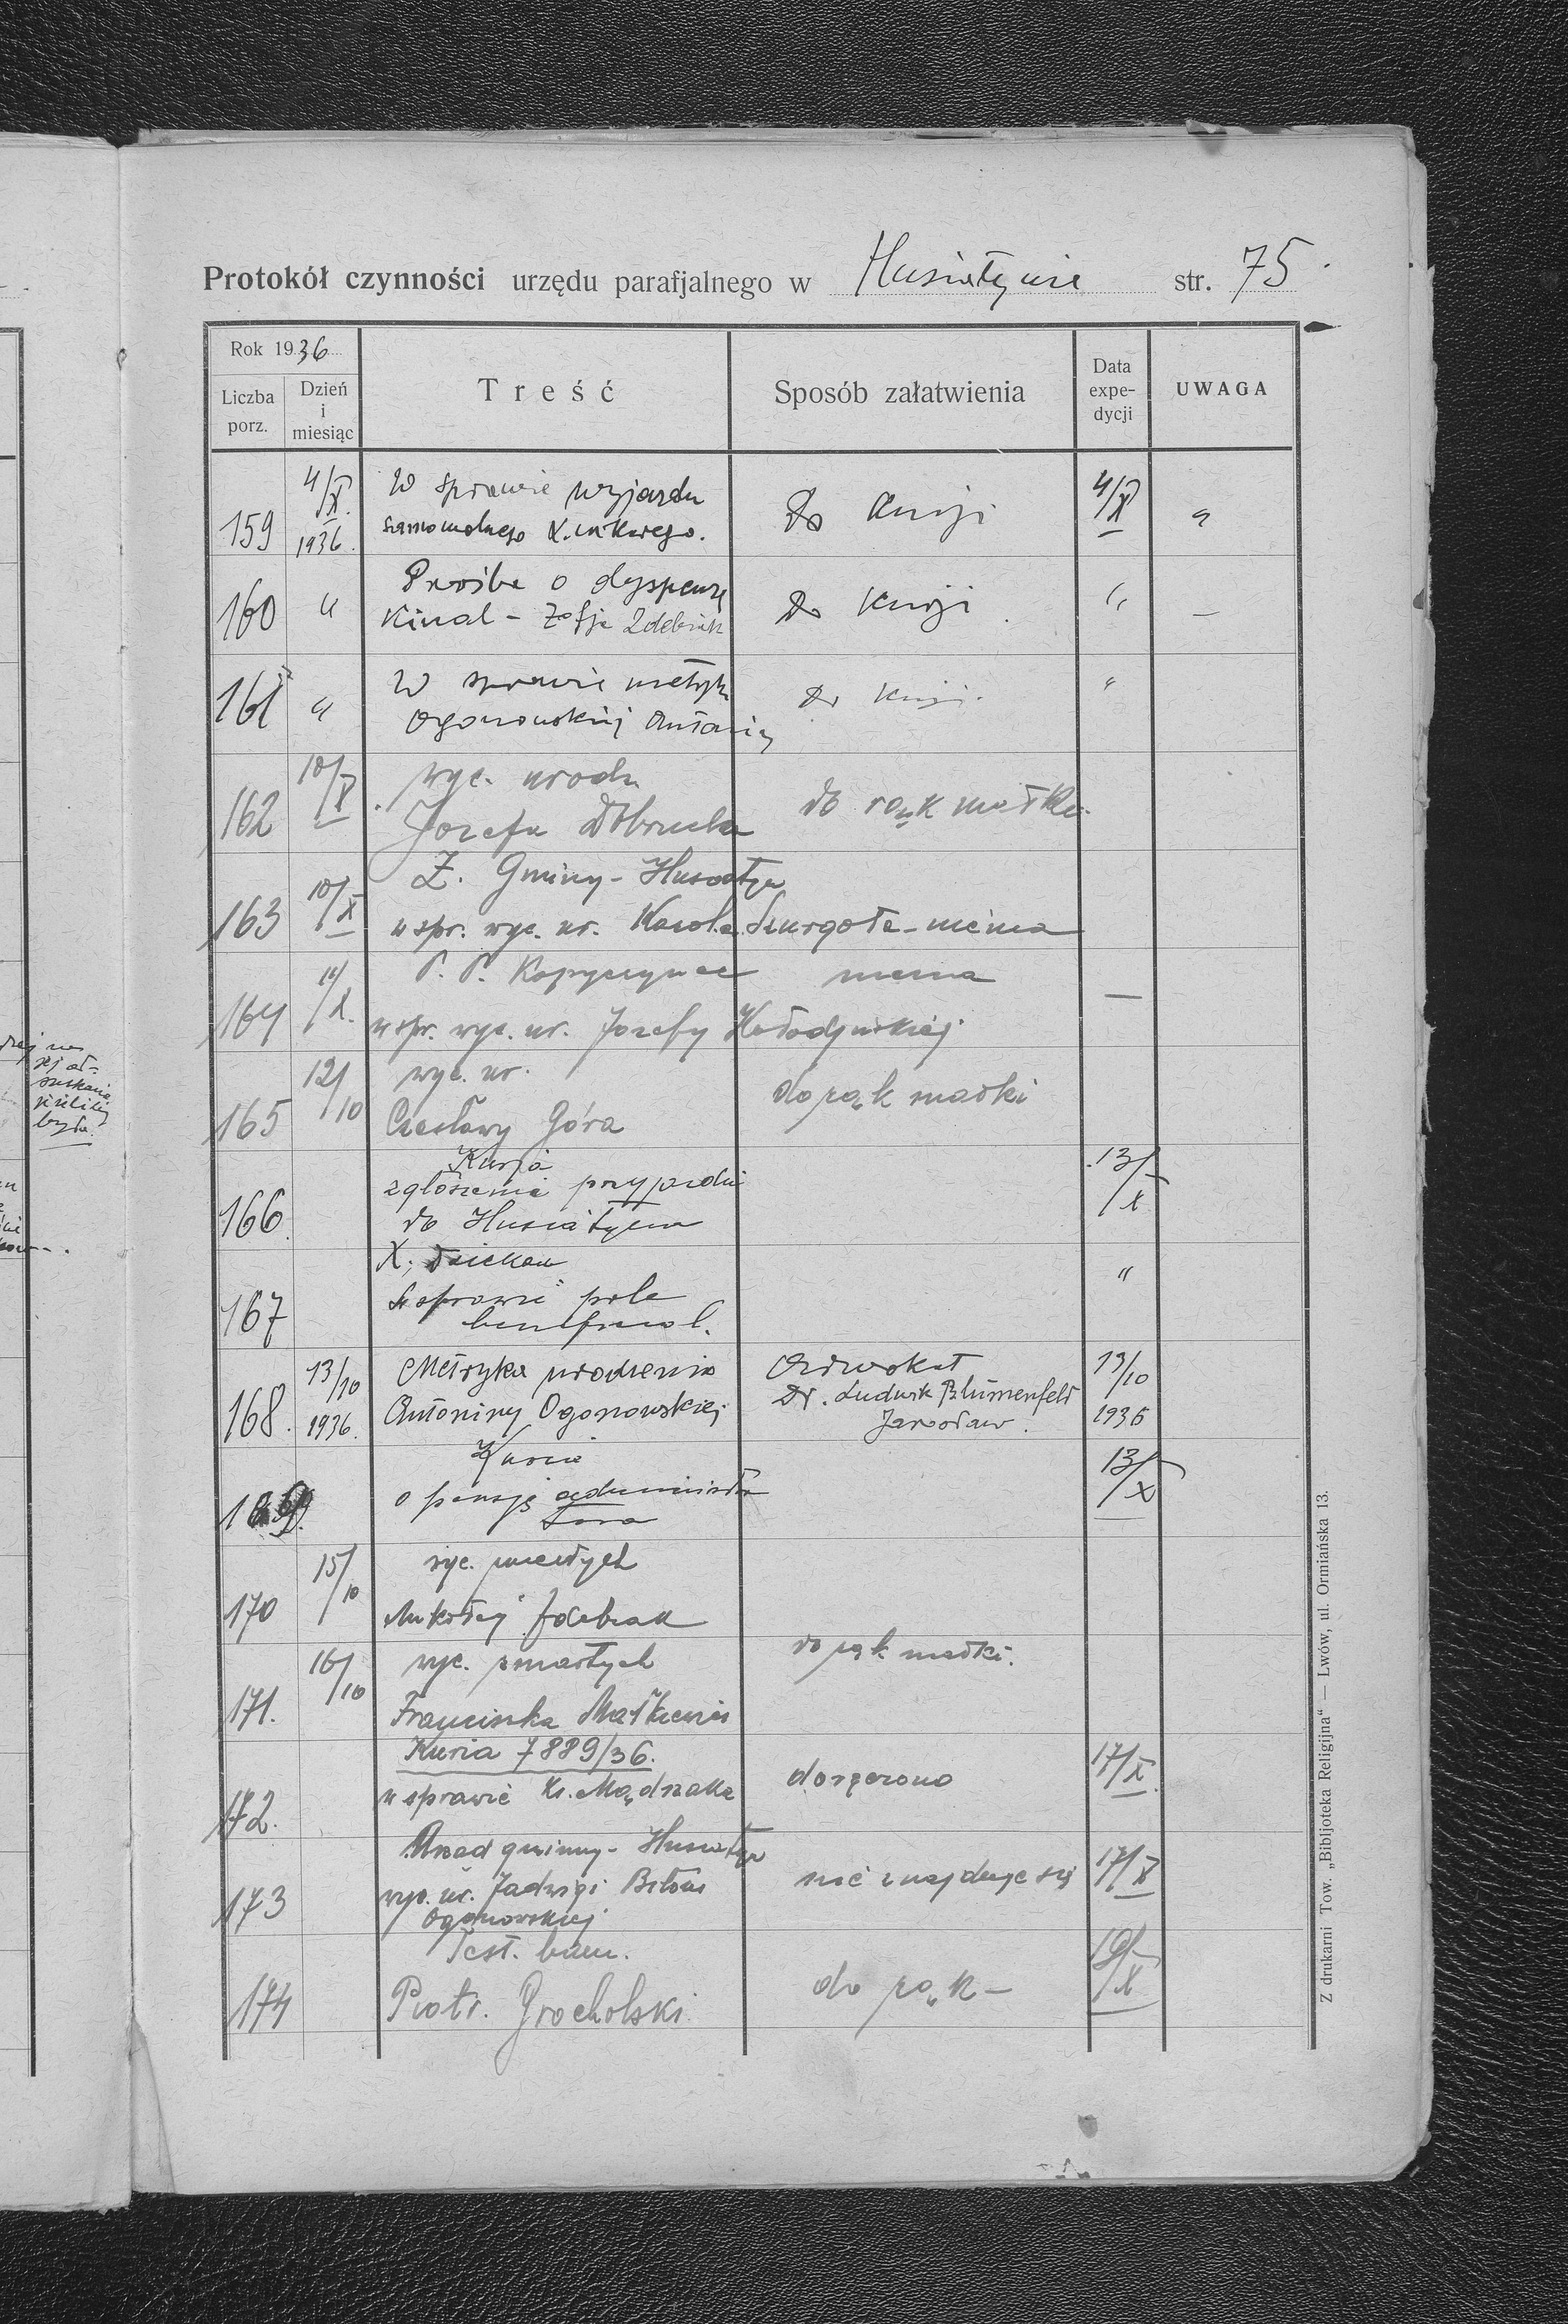 Protokół czynności urzędu parafjalnego w Husiatynie str. 75
Rok 1936
Liczba porz.
Dzień i miesiąc
Treść
Sposób załatwienia
Data expe-dycji
UWAGA
159 4/X. 1936. W sprawie wyjazdu Do Kurji 4/X "
samowolnego X.
160 " Prośba o dyspenzę Do Kurji " —
Kinal - Zofja Zdebiak
161 " W sprawie metryki Do Kurji. "
Ogonowskiej Antoniny
162 10/X wyc. urodz. do rąk matki.
Jozefa
163 10/X Z. Gminy - Husiatyn
w spr. wyc. ur. Karola Szurgota - niema
164 11/X. P. P. Kopyczynce niema —
w spr. wyc. ur. Jozefy Hołodyńskiej
165 12/10 wyc. ur. do rąk matki
Czesławy Góra
166. Kurja 13/X
zgłoszenie przyjazdu
do Husiatyna
167 X. Dziekan "
W sprawie pola
168. 13/10 1936. Metryka urodzenia Adwokat 13/10 1936
Antoniny Ogonowskiej Dr. Ludwik Blumenfeld
Jarosław.
169. Kuria 13/X
o pensję administra
tora
170 15/10 wyc. zmarłych
Mikołaj
171. 16/10 wyc. zmarłych do rąk matki.
Franciszka Matkiewicz
172. Kuria 7889/36. doręczono 17/X.
w sprawie Ks. Mądrzaka
173 Urząd gminny - Husiatyn nie znajduje się 17/X
wyc. ur. Jadwigi
Ogonowskiej
174 Test. bapt. do rąk - 19/X
Piotr. Grocholski
Z drukarni Tow. „Bibljoteka Religijna" — Lwów, ul. Ormiańska 13.